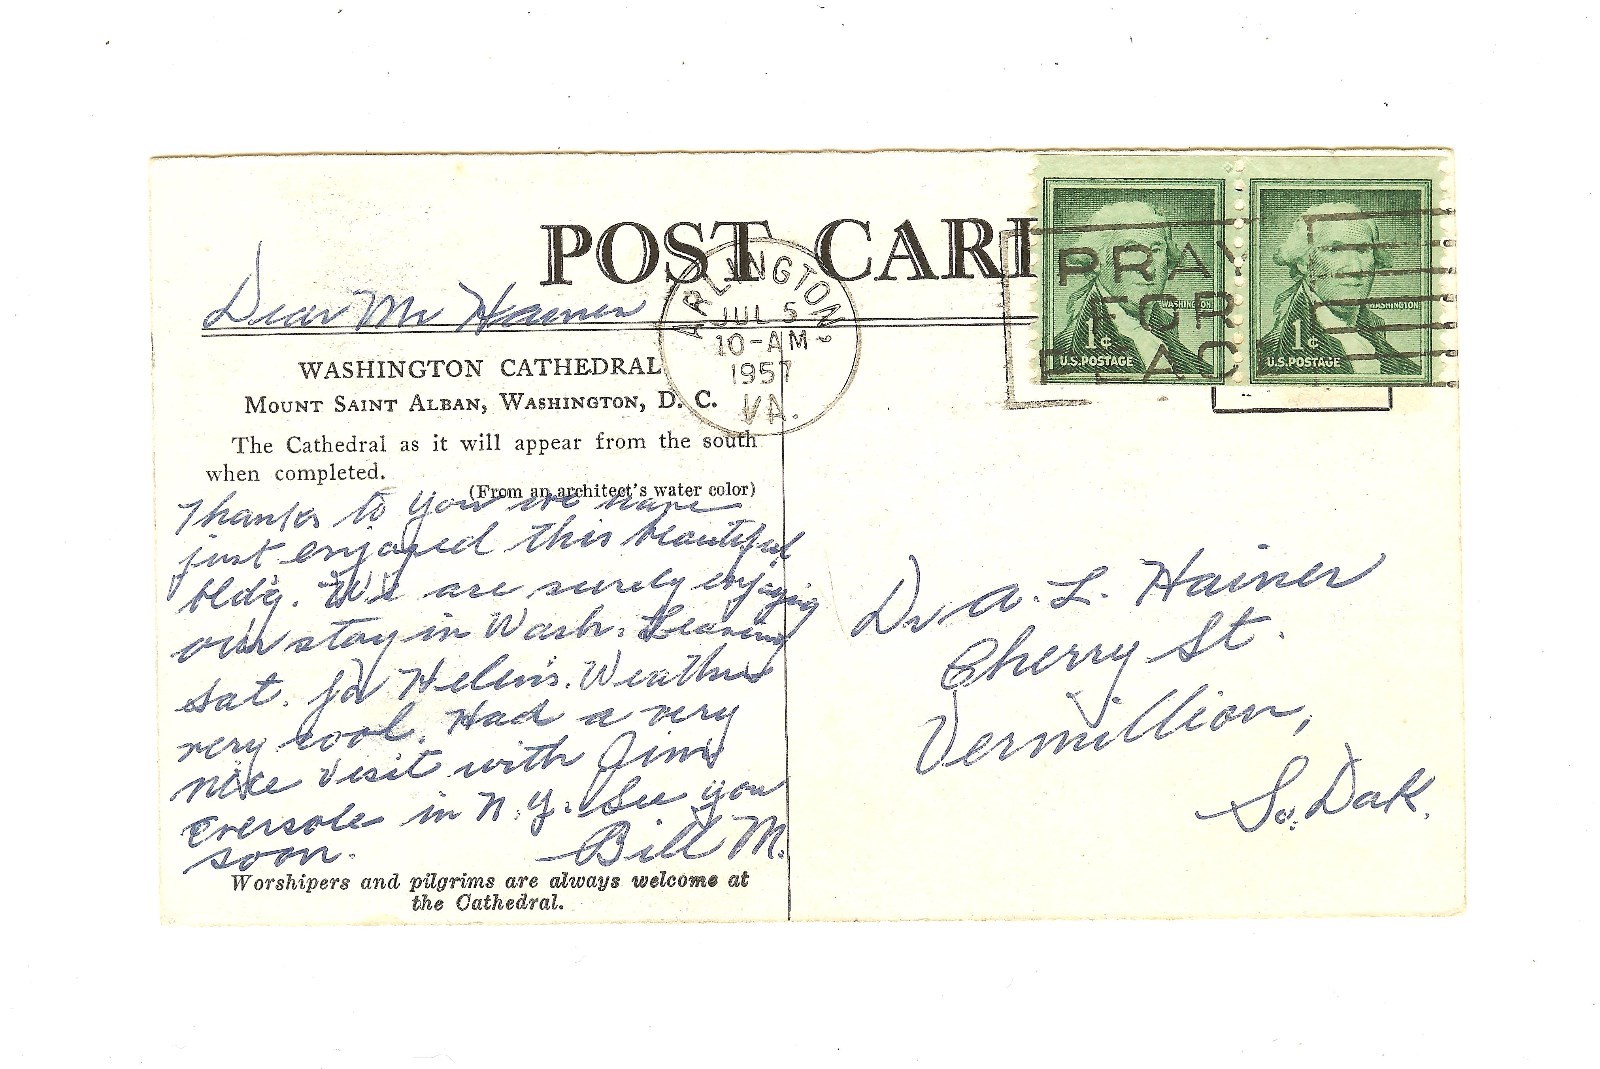 POST CARD
ARLINGTON
JUL 5
10-AM
1957
VA.
PRAY
FOR
PEACE
WASHINGTON
1¢
U.S. POSTAGE
WASHINGTON
1¢
U.S. POSTAGE
Dear Mr Hainer
WASHINGTON CATHEDRAL
MOUNT SAINT ALBAN, WASHINGTON, D. C.
The Cathedral as it will appear from the south
when completed.
(From an architect's water color)
Thanks to you we have
just enjoyed this beautiful
bldg. We are surely enjoying
our stay in Wash. Leaving
Sat. for Helen's. Weather
very cool. Had a very
nice visit with Jim
Eversole in N.Y. See you
soon. Bill M.
Worshipers and pilgrims are always welcome at
the Cathedral.
Dr A. L. Hainer
Cherry St.
Vermillion,
So. Dak.